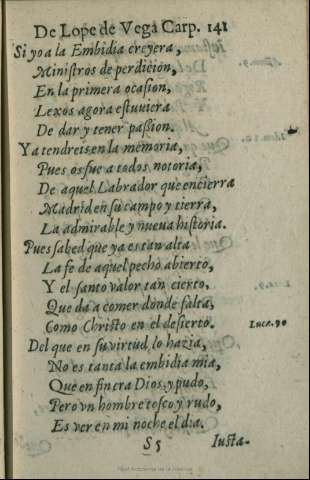 De Lope de Vega Carp. 141
Si yo a la Embidia creyera,
Ministros de perdicion,
En la primera ocasion,
Lexos agora estuviera
De dar y tener passion.
Ya tendreis en la memoria,
Pues os fue a todos notoria,
De aquel Labrador que encierra
Madrid en su campo y tierra,
La admirable y nueva historia.
Pues sabed que ya es tan alta
La fe de aquel pecho abierto,
Y el santo valor tan cierto,
Que da a comer donde falta,
Como Christo en el desierto.
Luca. 90
Del que en su virtud lo hazia,
No es tanta la embidia mia,
Que en fin era Dios, y pudo,
Pero vn hombre tosco y rudo,
Es ver en mi noche el dia.
S5
Iusta-